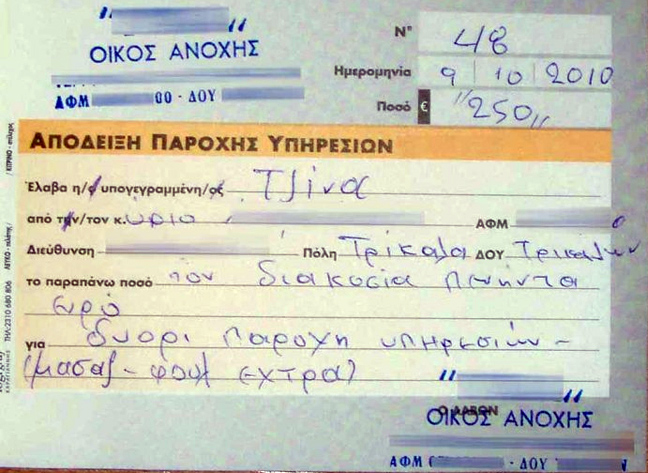 ΟΙΚΟΣ ΑΝΟΧΗΣ
ΑΦΜ 00 - ΔΟΥ
Ν° 48
Ημερομηνία 9 10 2010
Ποσό € "250"
ΑΠΟΔΕΙΞΗ ΠΑΡΟΧΗΣ ΥΠΗΡΕΣΙΩΝ
Έλαβα η/ο υπογεγραμμένη/ος Τζίνα
από την/τον κ. ύριο ΑΦΜ
Διεύθυνση Πόλη Τρίκαλα ΔΟΥ Τρικάλων
το παραπάνω ποσό των διακοσια πενηντα
Ευρώ
για δυορι παροχη υπηρεσιών -
(μασαζ - φουλ εχτρα)
Ο ΛΑΒΩΝ
ΟΙΚΟΣ ΑΝΟΧΗΣ
ΑΦΜ - ΔΟΥ